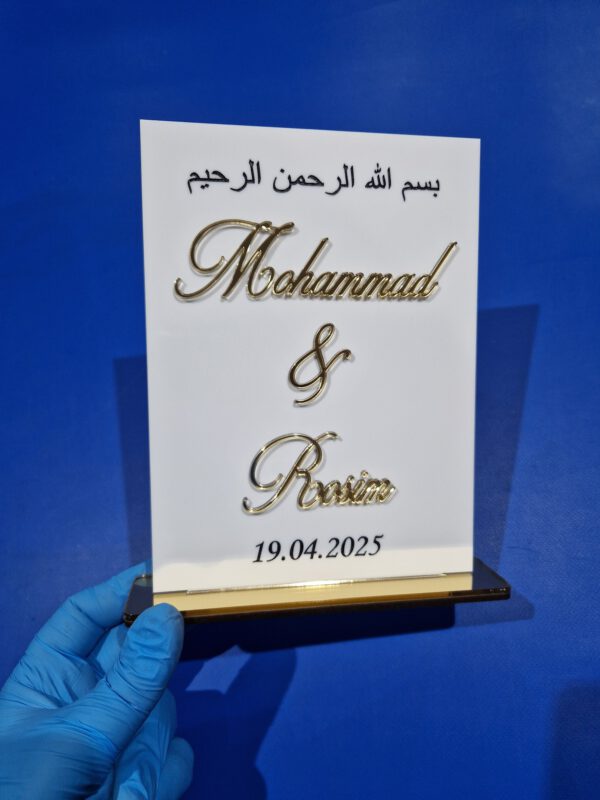 بسم الله الرحمن الرحيم
Mohammad
&
Rosim
19.04.2025